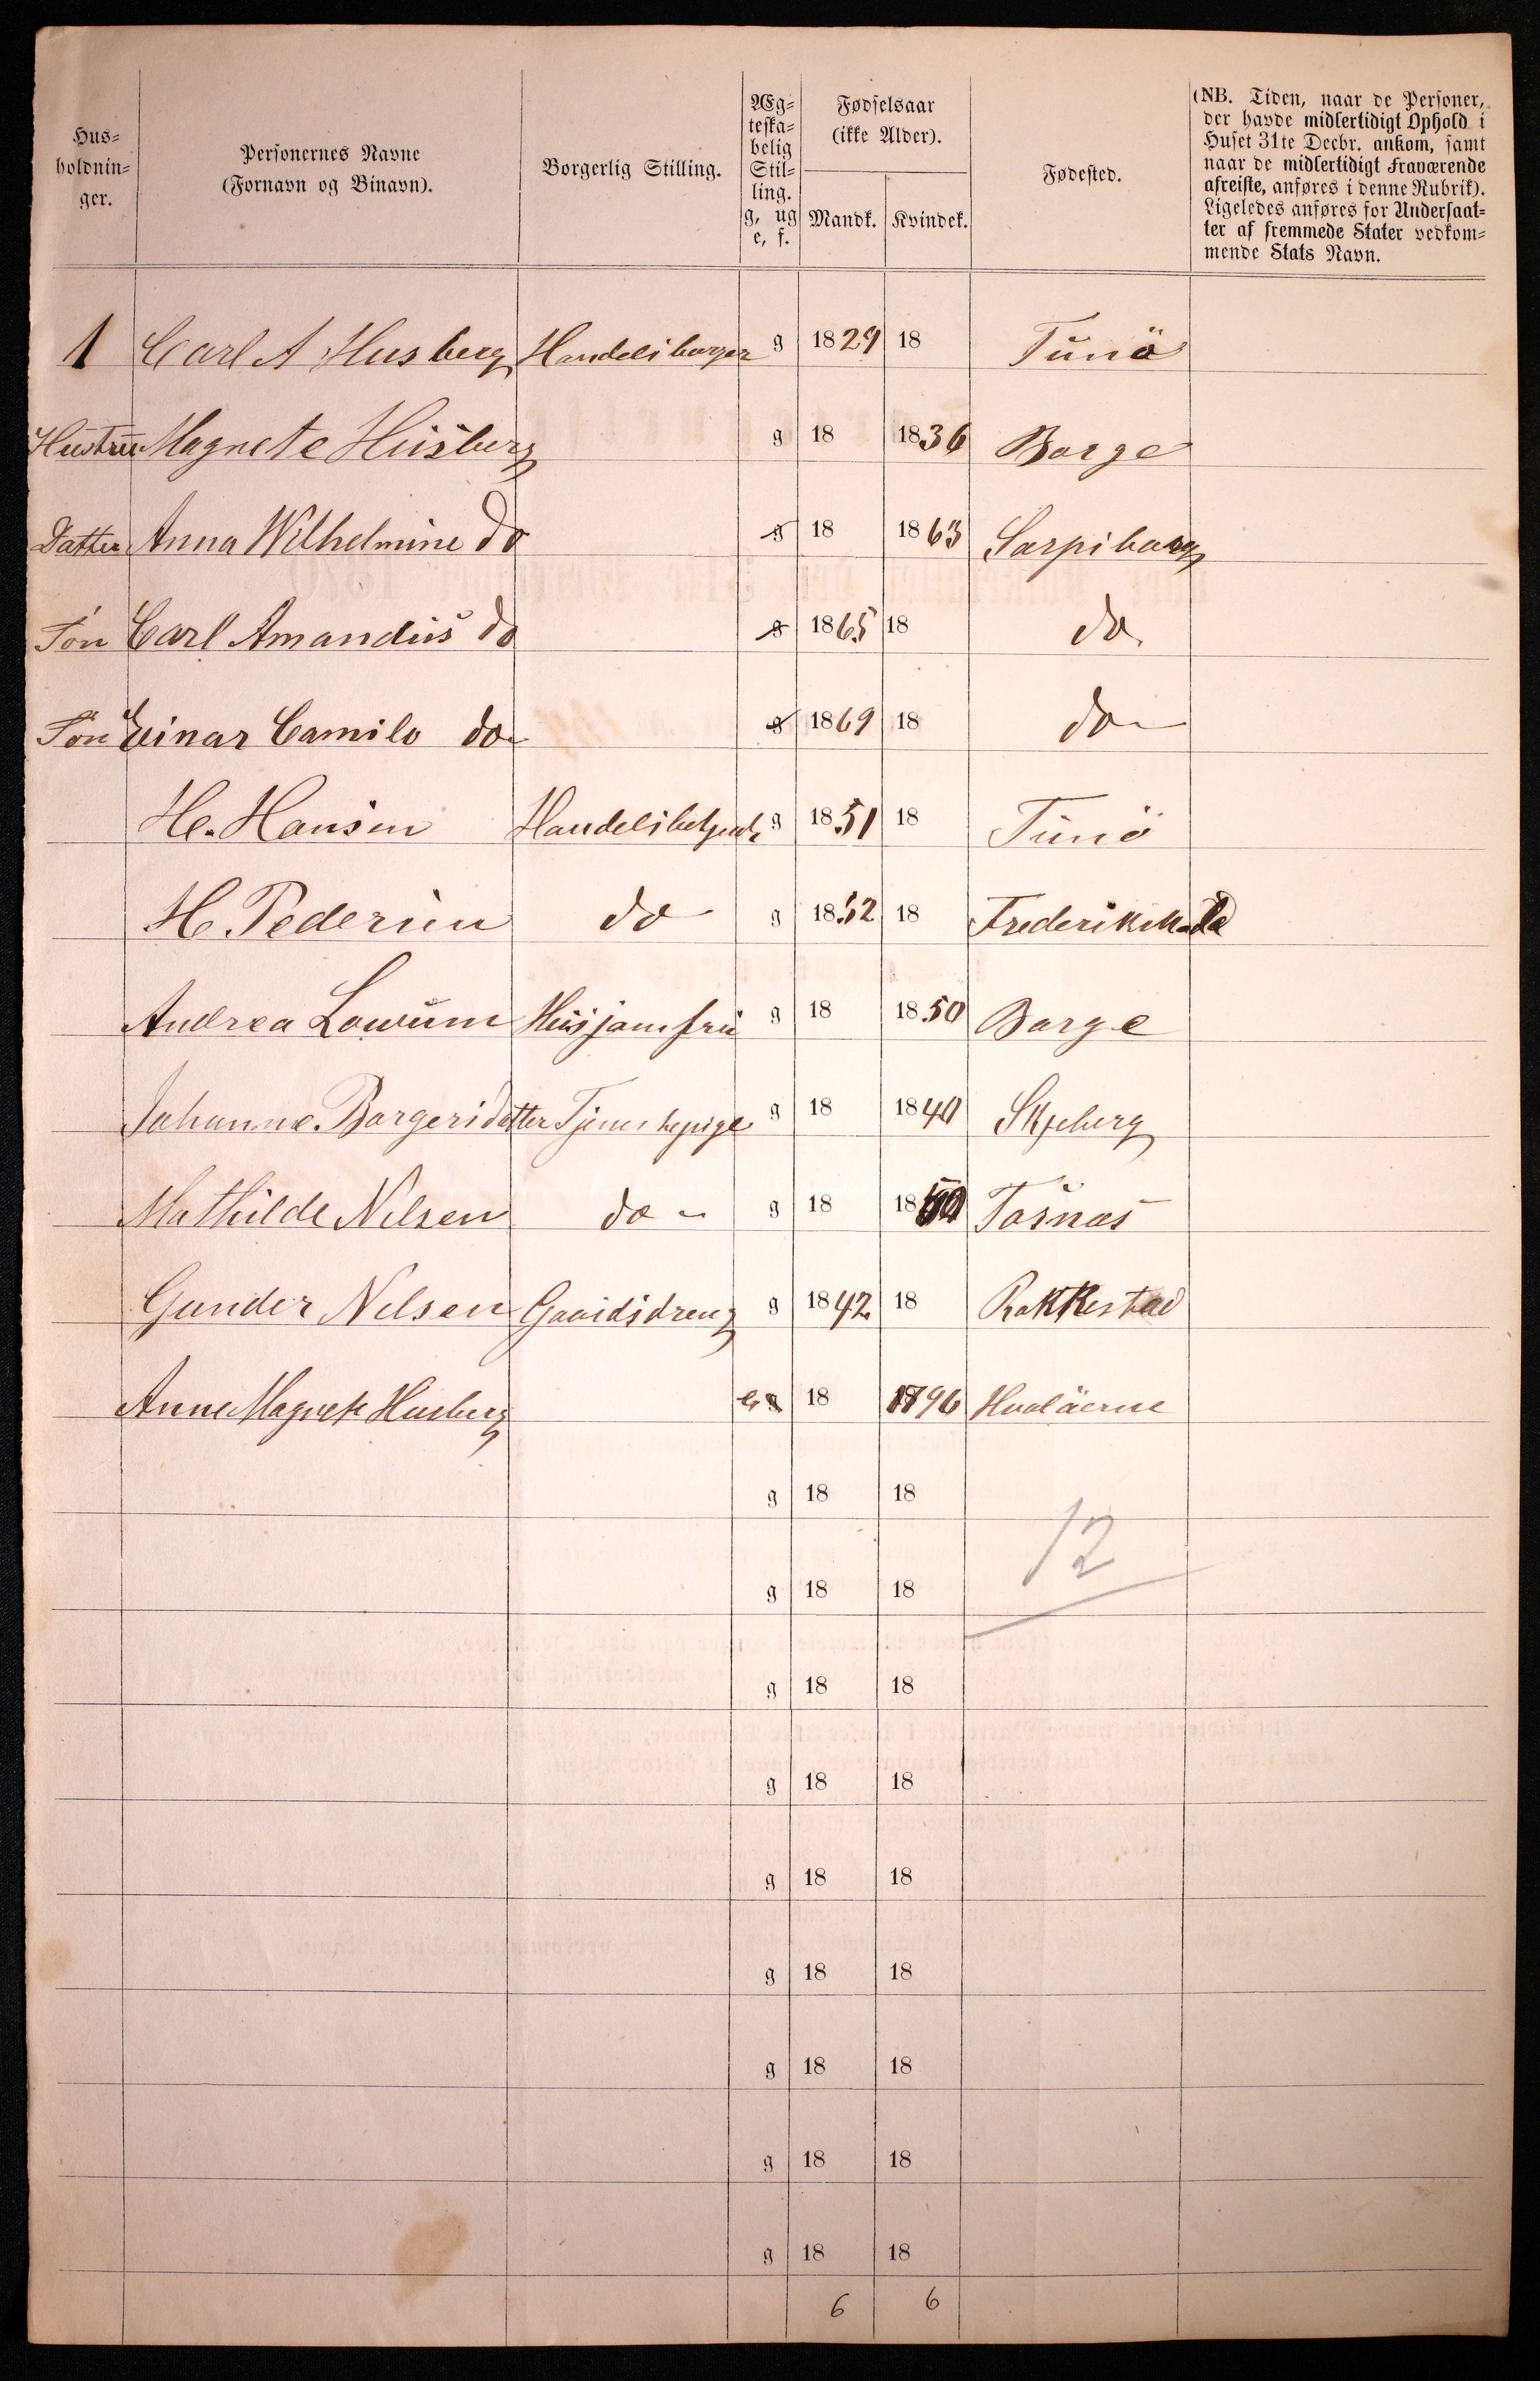 Hus=
holdnin=
ger.
Personernes Navne
(Fornavn og Binavn).
Borgerlig Stilling.
Æg=
teska=
belig
Stil=
ling.
g, ug
e, f.
Fødselsaar
(ikke Alder).
Mandk. Kvindek.
Fødested.
(NB. Tiden, naar de Personer,
der havde midlertidigt Ophold i
Huset 31te Decbr. ankom, samt
naar de midlertidigt Fraværende
afreiste, anføres i denne Rubrik).
Ligeledes anføres for Undersaat=
ter af fremmede Stater vedkom=
mende Stats Navn.
1 Carl A Husberg Handelsborger g 1829 18 Tunö
Hustru Magnete Husberg g 18 1836 Borge
Datter Anna Wilhelmine do g 18 1863 Sarpsborg
Sön Carl Amandus do g 1865 18 do
Sön Einar Camilo do g 1869 18 do
H. Hansen Handelsbetjent g 1851 18 Tunö
H Pedersen do g 1852 18 Frederikstad
Andrea Lowum Husjomfru g 18 1850 Borge
Johanne Borgersdatter Tjenestepige g 18 1840 Skjeberg
Mathilde Nilsen do g 18 18 Tosnæs
Gunder Nilsen Gaardsdreng g 1842 18 Rakkestad
Anne Magnete Husberg e g 18 1796 Hvaløerne
g 18 18
12
g 18 18
g 18 18
g 18 18
g 18 18
g 18 18
g 18 18
g 18 18
g 18 18
6 6